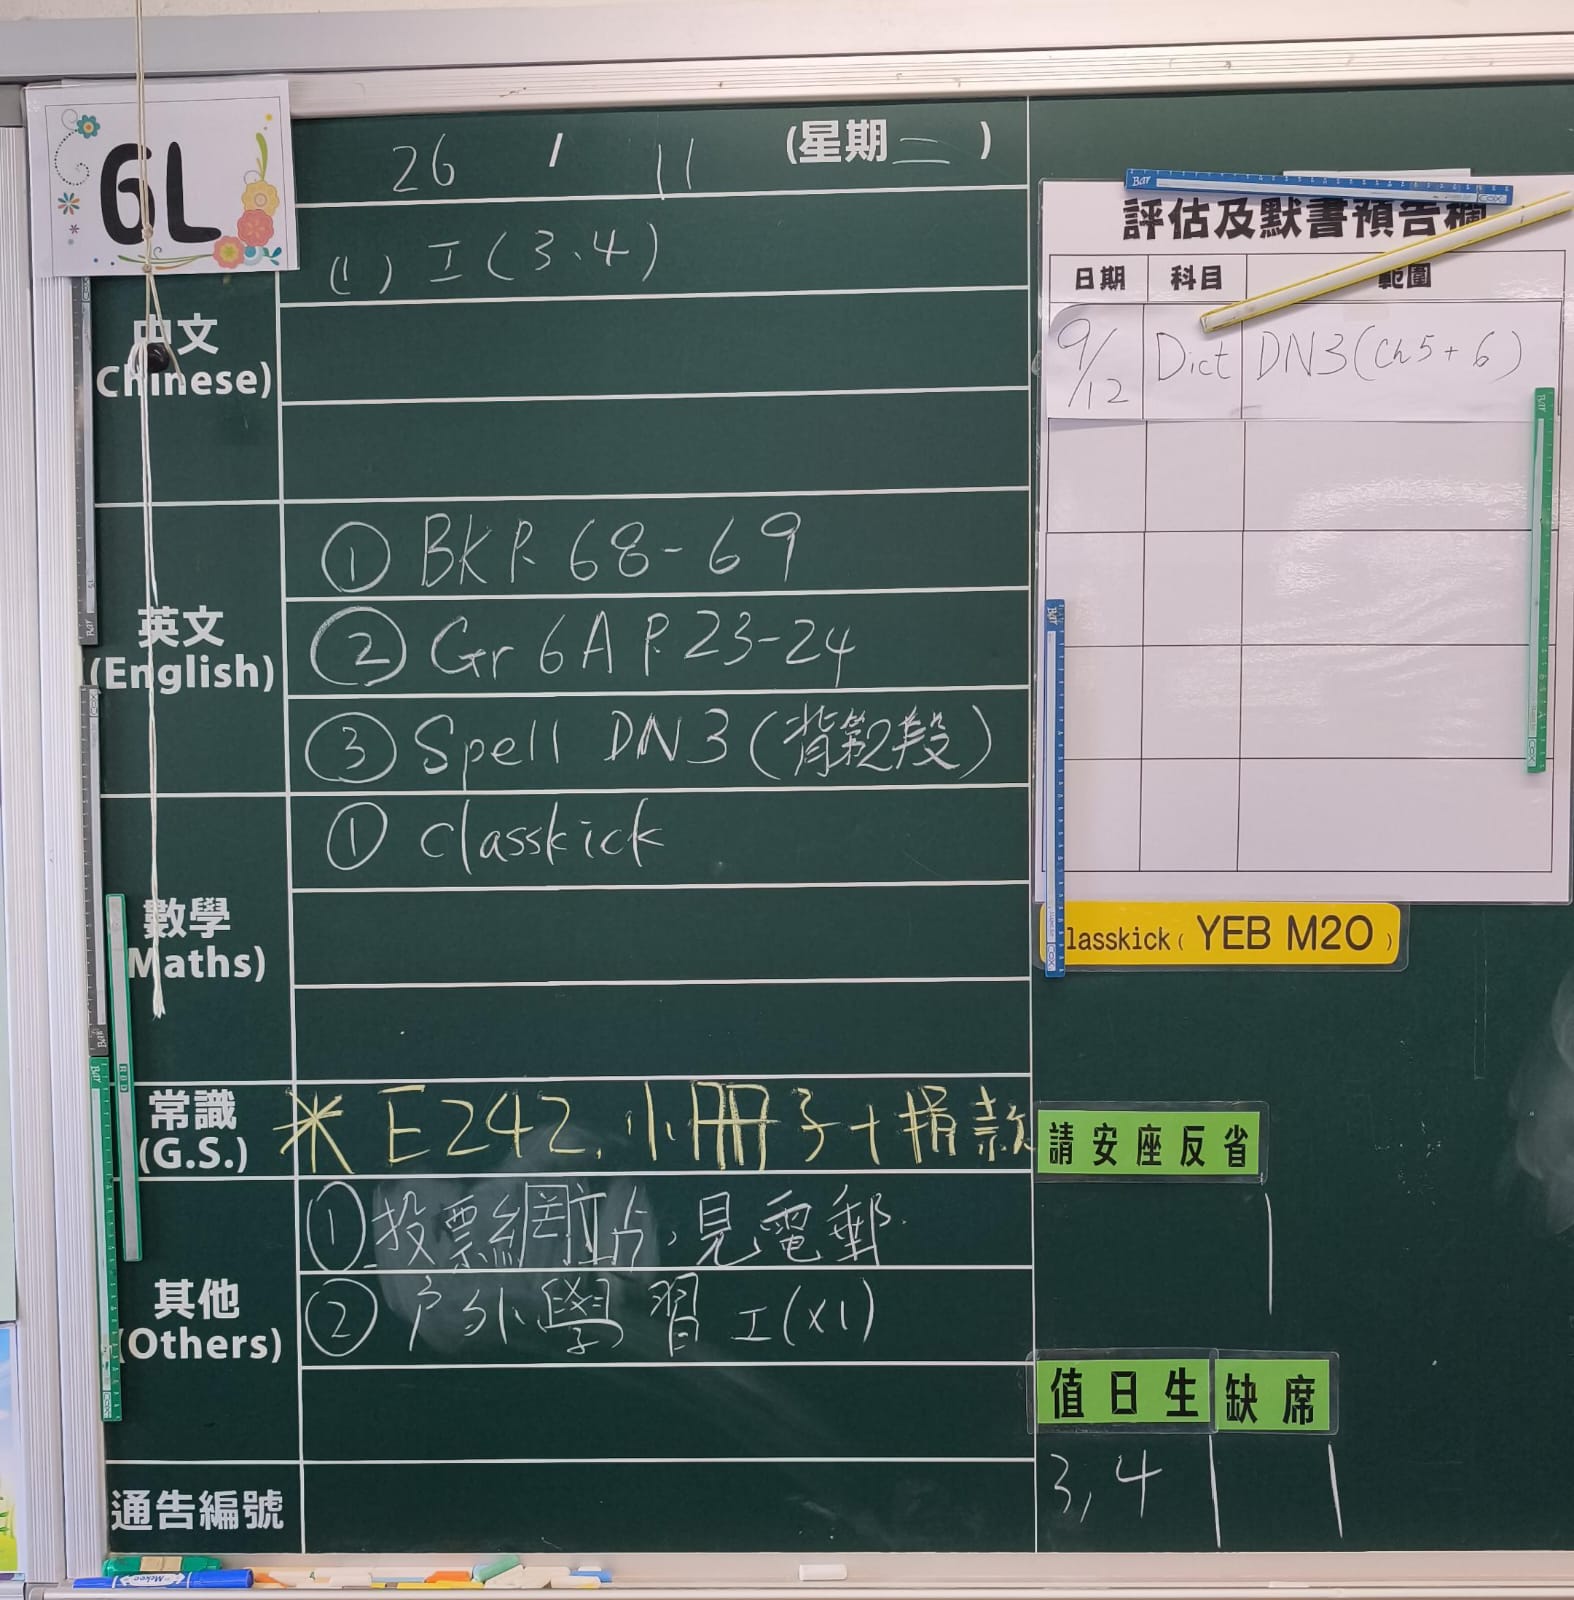 6L
26 / 11 (星期二)
(1) 工(3、4)
中文
(Chinese)
英文
(English)
① BK P. 68-69
② Gr 6A P. 23-24
③ Spell DN3 (背範段)
數學
(Maths)
① Classkick
常識
(G.S.)
* E242. 小冊子+捐款
其他
(Others)
① 投票網站,見電郵.
② 戶外學習工(x1)
通告編號
評估及默書預告欄
日期 科目 範圍
9/12 Dict DN3(Ch5+6)
lasskick( YEB M2O )
請安座反省
值日生 缺席
3, 4